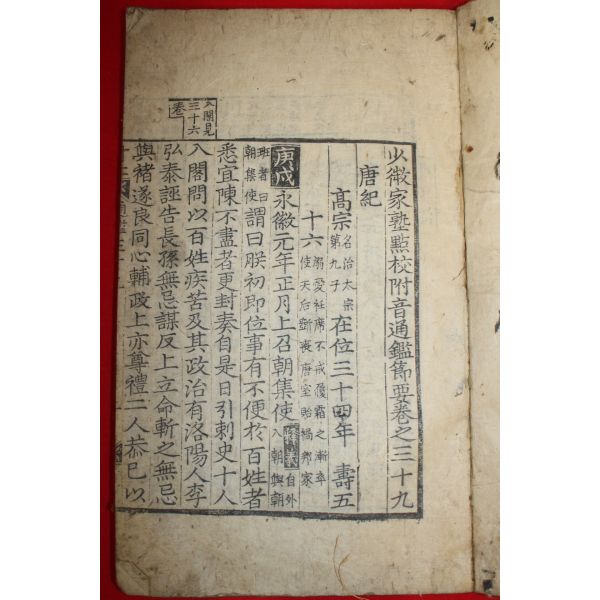 少微家塾點校附音通鑑節要卷之三十九
唐紀
高宗 名治太宗第九子 在位三十四年 壽五
十六 溺愛衽席不戒履霜之漸卒使天后斲喪唐室貽禍邦家
庚戌 永徽元年正月上召朝集使 自外入朝與朝
班者曰朝集使 謂曰朕初即位事有不便於百姓者
悉宜陳不盡者更封奏自是日引刺史十人
入閤問以百姓疾苦及其政治有洛陽人李
弘泰誣告長孫無忌謀反上立命斬之無忌
與褚遂良同心輔政上亦尊禮二人恭己以
入閣見三十六卷